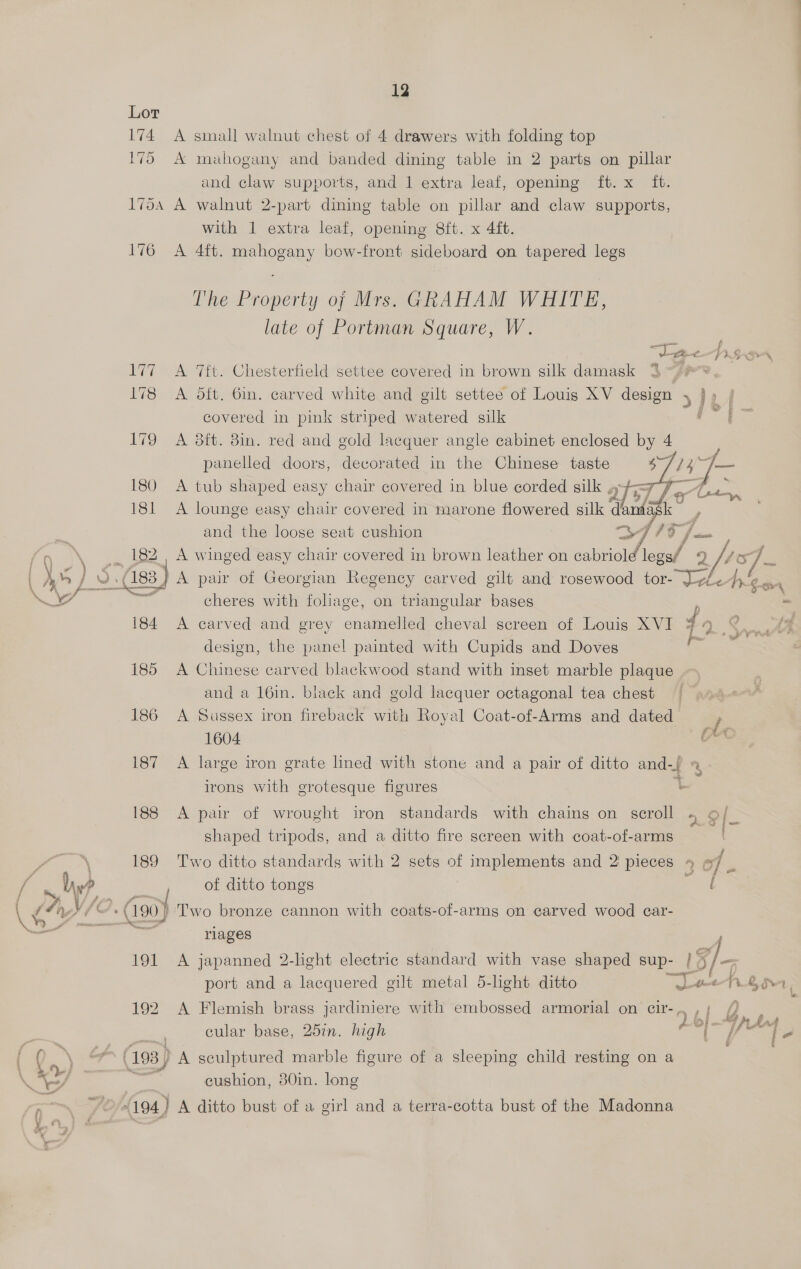 12
Lot
174 A small walnut chest of 4 drawers with folding top
175 A mahogany and banded dining table in 2 parts on pillar
and claw supports, and 1 extra leaf, opening ft. x ft.
175A A walnut 2-part dining table on pillar and claw supports,
with 1 extra leaf, opening 8ft. x 4ft.
176 A 4ft. mahogany bow-front sideboard on tapered legs
The Property of Mrs. GRAHAM WHITE,
late of Portman Square, W.
177 A 7ft. Chesterfield settee covered in brown silk damask
178 A 5ft. 6in. carved white and gilt settee of Louis XV design
covered in pink striped watered silk
179 A 3ft. 3in. red and gold lacquer angle cabinet enclosed by 4
panelled doors, decorated in the Chinese taste
180 A tub shaped easy chair covered in blue corded silk
181 A lounge easy chair covered in marone flowered silk damask
and the loose seat cushion
182 A winged easy chair covered in brown leather on cabriole legs
183 A pair of Georgian Regency carved gilt and rosewood tor-
cheres with foliage, on triangular bases
184 A carved and grey enamelled cheval screen of Louis XVI
design, the panel painted with Cupids and Doves
185 A Chinese carved blackwood stand with inset marble plaque
and a 16in. black and gold lacquer octagonal tea chest
186 A Sussex iron fireback with Royal Coat-of-Arms and dated
1604
187 A large iron grate lined with stone and a pair of ditto and-
irons with grotesque figures
188 A pair of wrought iron standards with chains on scroll
shaped tripods, and a ditto fire screen with coat-of-arms
189 Two ditto standards with 2 sets of implements and 2 pieces
of ditto tongs
190 Two bronze cannon with coats-of-arms on carved wood car-
riages
191 A japanned 2-light electric standard with vase shaped sup-
port and a lacquered gilt metal 5-light ditto
192 A Flemish brass jardiniere with embossed armorial on cir-
cular base, 25in. high
193 A sculptured marble figure of a sleeping child resting on a
cushion, 30in. long
194 A ditto bust of a girl and a terra-cotta bust of the Madonna